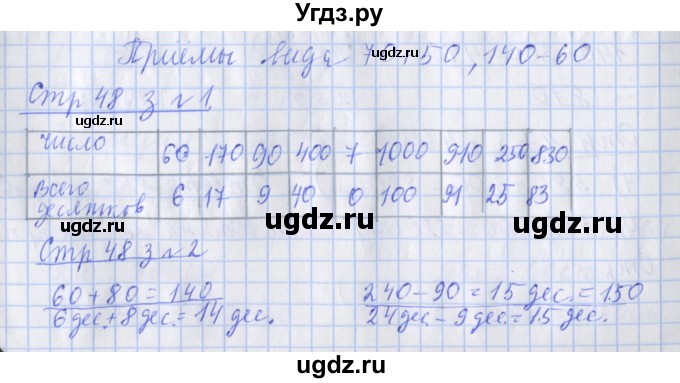 Угдз.ру
Приёмы вида 70+50, 140-60
Стр 48 з №1
ugdz.ru
ugdz.ru
число 60 170 90 400 7 1000 910 250 830
Всего десятков 6 17 9 40 0 100 91 25 83
ugdz.ru
ugdz.ru
Стр 48 з №2
ugdz.ru
60+80=140 240-90=15 дес.=150
6 дес.+8 дес.=14 дес. 24 дес.-9 дес.=15 дес.
ugdz.ru
ugdz.ru